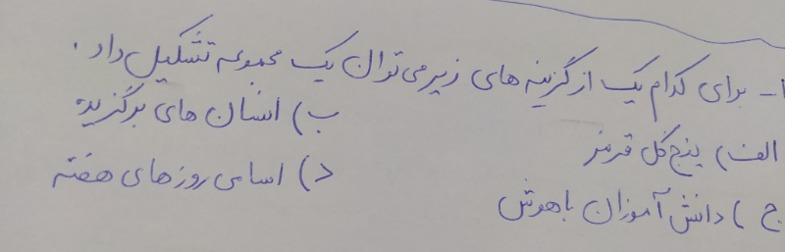 ۱- برای کدام یک از گزینه های زیر می توان یک مجموعه تشکیل داد.
الف) پنج گل قرمز ب) انسان های برگزیده
ج) دانش آموزان باهوش د) اسامی روزهای هفته